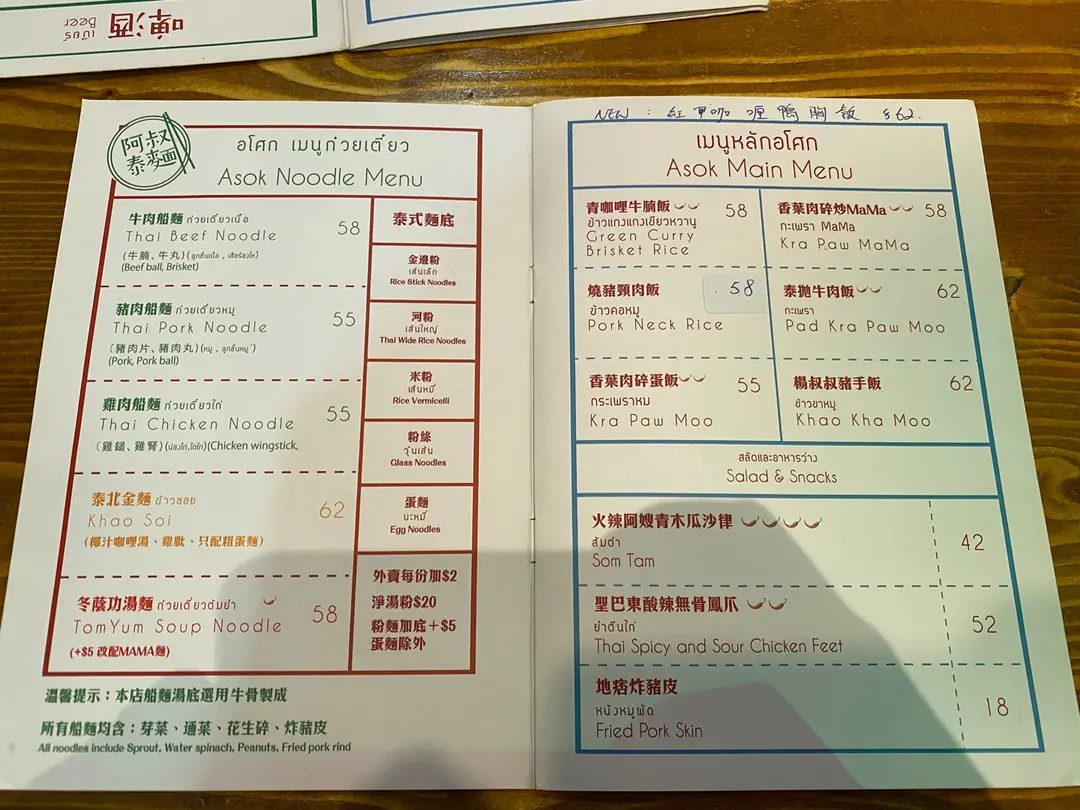 啤酒
เบียร์
Beer
阿叔
泰麵
อโศก เมนูก๋วยเตี๋ยว
Asok Noodle Menu
牛肉船麵 ก๋วยเตี๋ยวเนื้อ 58
Thai Beef Noodle
(牛腩、牛丸)
(Beef ball, Brisket)
豬肉船麵 ก๋วยเตี๋ยวหมู 55
Thai Pork Noodle
(豬肉片、豬肉丸)
(Pork, Pork ball)
雞肉船麵 ก๋วยเตี๋ยวไก่ 55
Thai Chicken Noodle
(雞鎚、雞腎) (Chicken wingstick,
泰北金麵 ข้าวซอย 62
Khao Soi
(椰汁咖喱湯、雞肶、只配粗蛋麵)
冬蔭功湯麵 ก๋วยเตี๋ยวต้มยำ 58
TomYum Soup Noodle
(+$5 改配MAMA麵)
泰式麵底
金邊粉
เส้นเล็ก
Rice Stick Noodles
河粉
เส้นใหญ่
Thai Wide Rice Noodles
米粉
เส้นหมี่
Rice Vermicelli
粉絲
วุ้นเส้น
Glass Noodles
蛋麵
บะหมี่
Egg Noodles
外賣每份加$2
淨湯粉$20
粉麵加底+$5
蛋麵除外
溫馨提示：本店船麵湯底選用牛骨製成
所有船麵均含：芽菜、通菜、花生碎、炸豬皮
All noodles include Sprout, Water spinach, Peanuts, Fried pork rind
NEW : 紅咖喱鴨胸飯 $62.
เมนูหลักอโศก
Asok Main Menu
青咖哩牛腩飯 58
ข้าวแกงแกงเขียวหวานวู
Green Curry
Brisket Rice
香葉肉碎炒MaMa 58
กะเพรา MaMa
Kra Paw MaMa
燒豬頸肉飯 58
ข้าวคอหมู
Pork Neck Rice
泰拋牛肉飯 62
กะเพรา
Pad Kra Paw Moo
香葉肉碎蛋飯 55
กระเพราหม
Kra Paw Moo
楊叔叔豬手飯 62
ข้าวขาหมู
Khao Kha Moo
สลัดและอาหารว่าง
Salad & Snacks
火辣阿嫂青木瓜沙律 42
ส้มตำ
Som Tam
聖巴東酸辣無骨鳳爪 52
ยำตีนไก่
Thai Spicy and Sour Chicken Feet
地痞炸豬皮 18
หนังหมูผัด
Fried Pork Skin